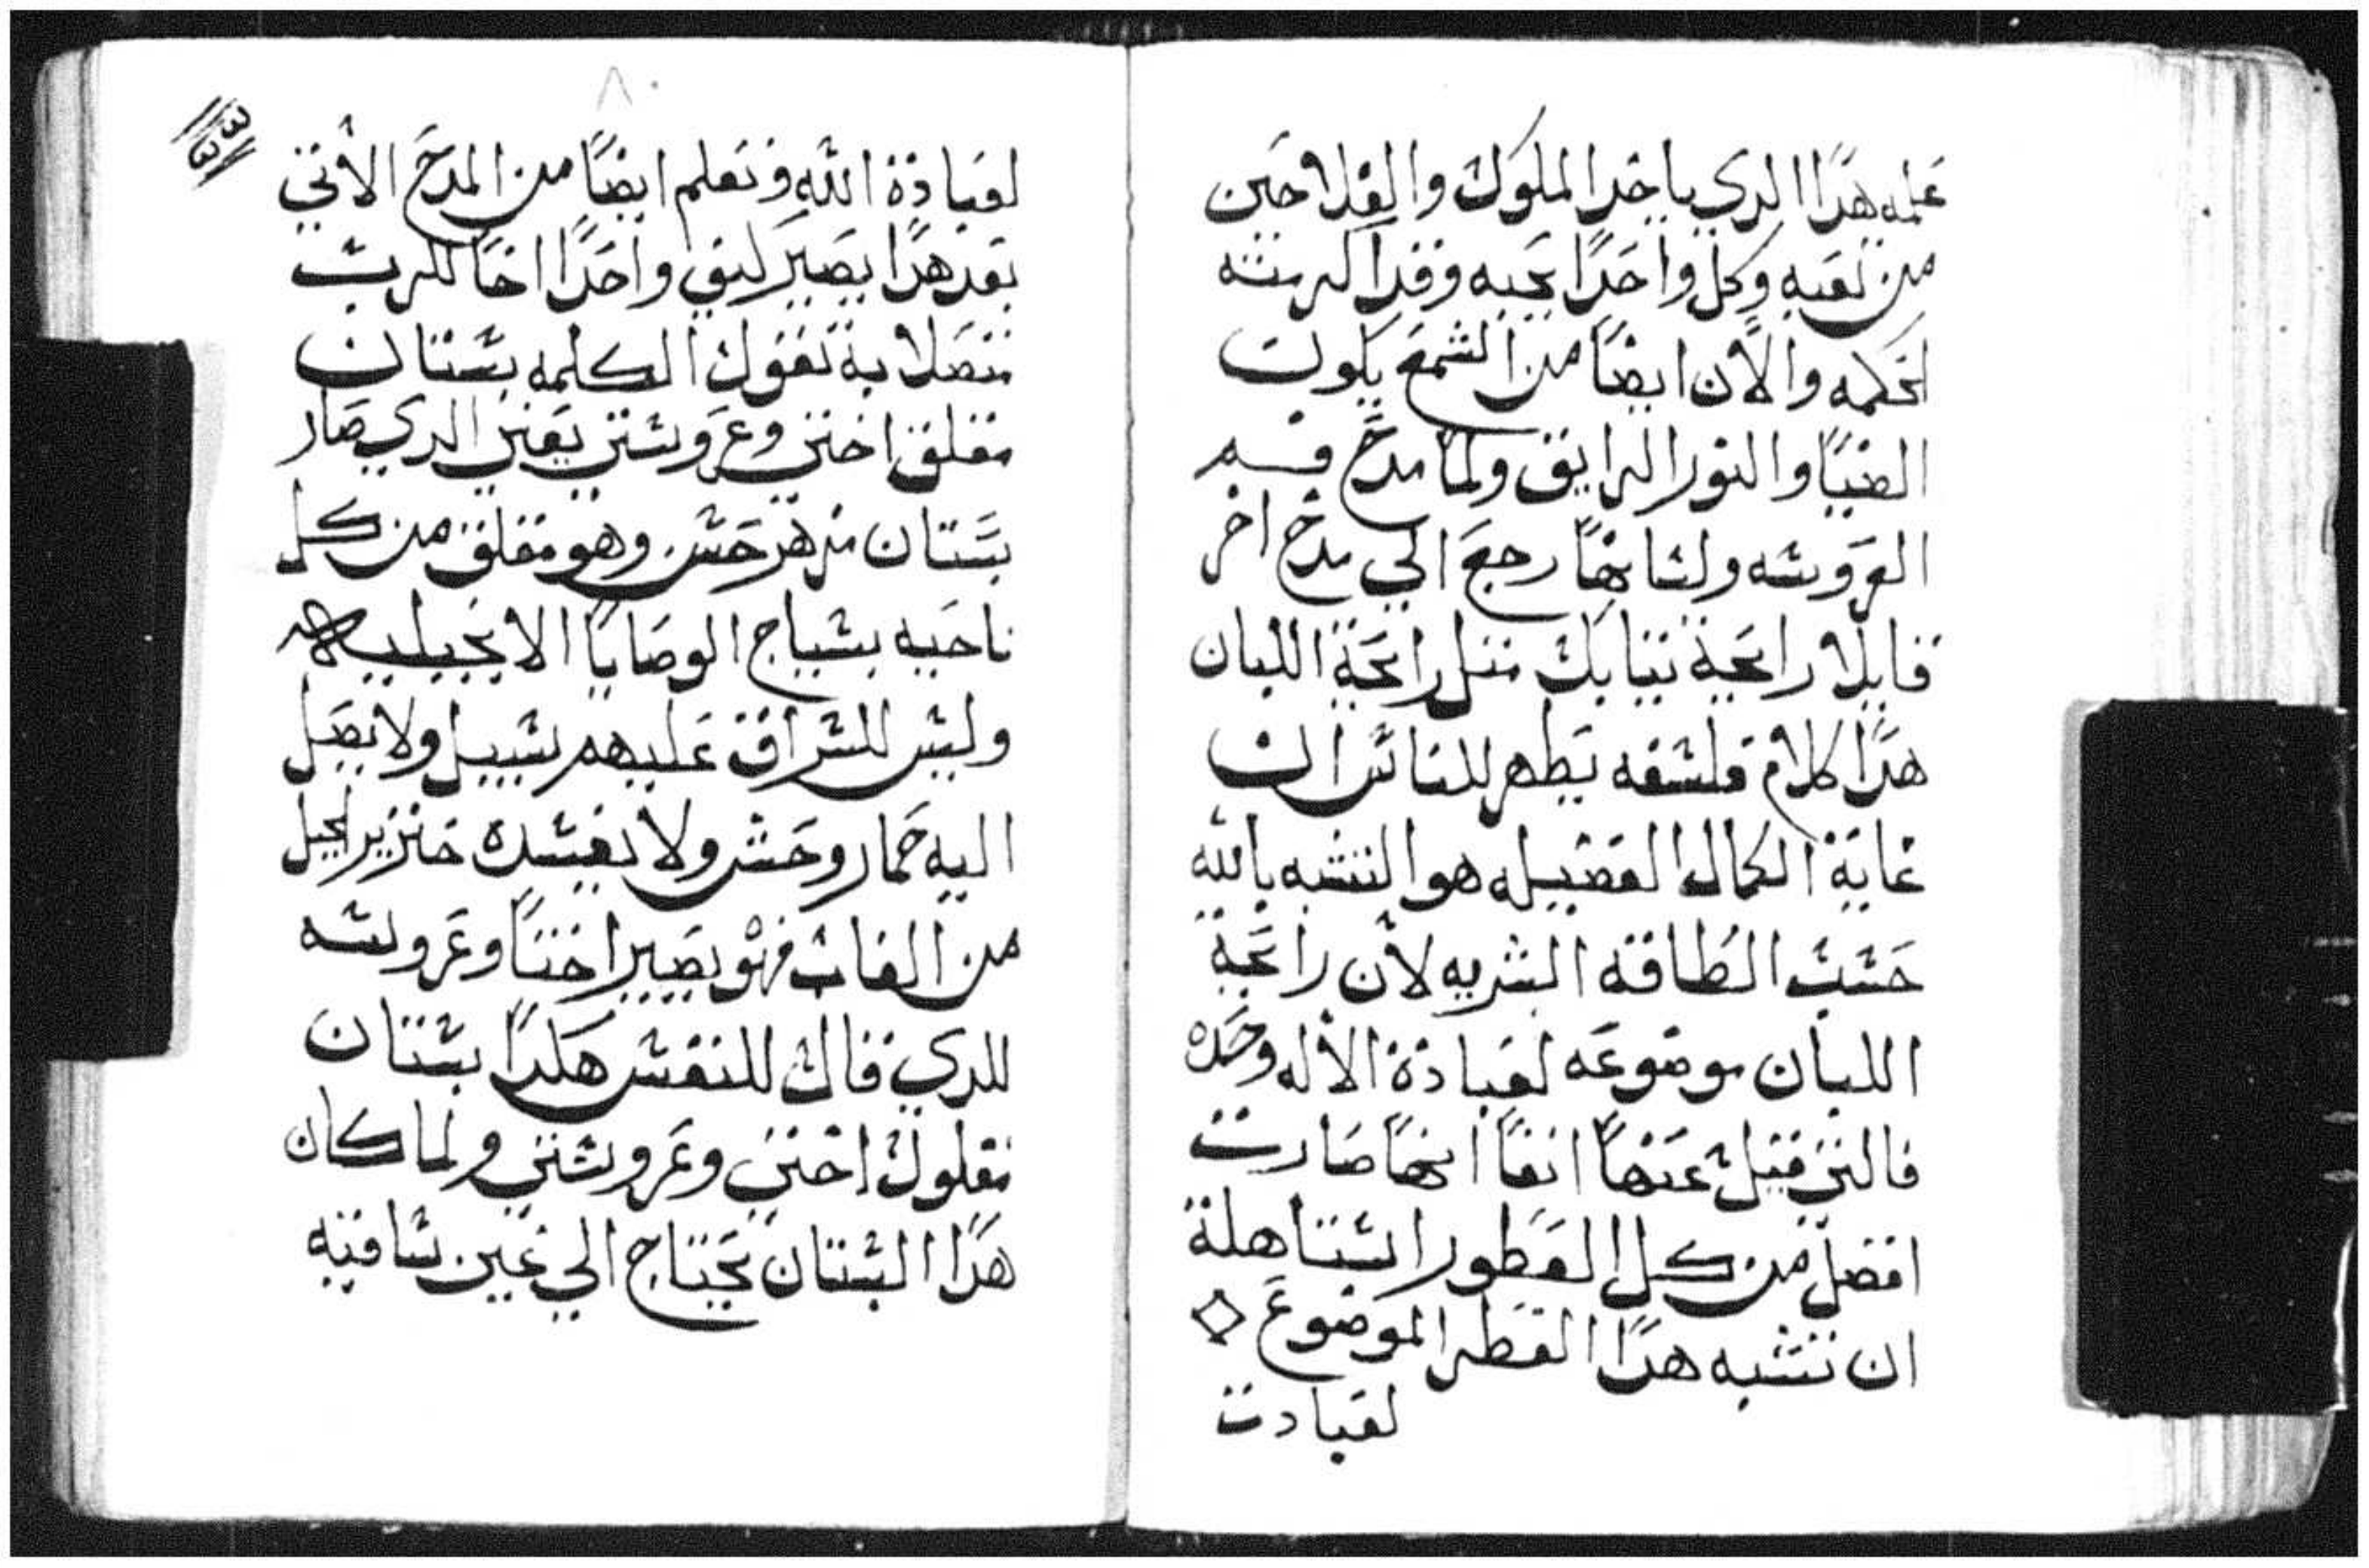 عمله هدا الدي ياخد الملوك والفلاحين
من تعبه وكل واحدا يحبه وقد اكرمته
الحكمه والان ايضا من الشمع يكون
الضيا والنور الرايق ولما مدح قسم
العروسه ولسانها رجع الي مدح اخر
قايلا رايحة تيابك متل رايحة اللبان
هدا كلام فلسفه يظهر للناس ان
غاية الكمال الفضيله هو التشبه بالله
حسب الطاقه البشريه لان رايحة
اللبان موضوعه لعبادة الاله وحده
فالتي قيل عنها انفا انها صارت
افضل من كل العطور استاهلة
ان تتشبه هدا العطر الموضوع
لعبادت
٨٠
لعبادة الله وتعلم ايضا من المدح الاتي
بعد هدا يصير كيف واحدا اخا للرب
متصلا به تقول الكلمه بستان
مغلق اختي وعروستي يعني الدي صار
بستان مزهر حسن وهو مغلق من كل
ناحيه بسياج الوصايا الانجيليه
وليس للسراق عليهم سبيل ولا يصل
اليه حمار وحش ولا يفسده خنزير الجبل
من الغاب فهو يصير اختا وعروسه
للدي قال للنفس هكدا بستان
مقلول اختي وعروستي ولما كان
هدا البستان يحتاج الي عين ساقيه